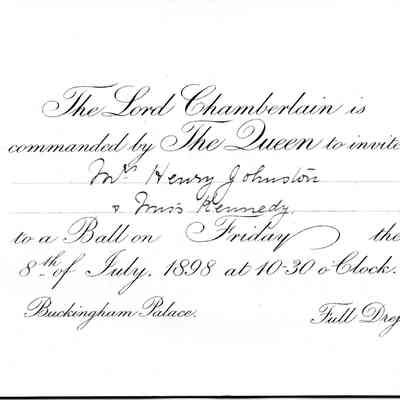 The Lord Chamberlain is
commanded by The Queen to invite
Mrs Henry Johnston
& Miss Kennedy
to a Ball on Friday the
8th of July. 1898 at 10-30 o'Clock.
Buckingham Palace. Full Dres